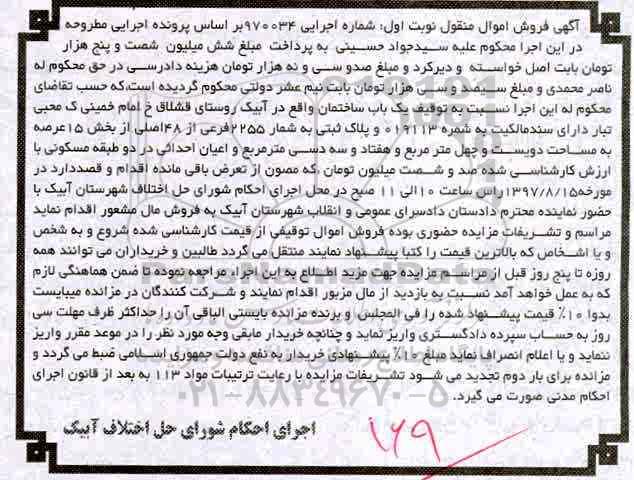 آگهی فروش اموال منقول نوبت اول: شماره اجرایی ۹۷۰۰۳۴بر اساس پرونده اجرایی مطروحه
در این اجرا محکوم علیه سیدجواد حسینی به پرداخت مبلغ شش میلیون شصت و پنج هزار
تومان بابت اصل خواسته و دیرکرد و مبلغ صدو سی و نه هزار تومان هزینه دادرسی در حق محکوم له
ناصر محمدی و مبلغ سیصد و سی هزار تومان بابت نیم عشر دولتی محکوم گردیده است،که حسب تقاضای
محکوم له این اجرا نسبت به توقیف یک باب ساختمان واقع در آبیک روستای قشلاق خ امام خمینی ک محبی
تبار دارای سندمالکیت به شمره ۰۱۹۱۱۳ و پلاک ثبتی به شمار ۲۲۵۵فرعی از ۴۸اصلی از بخش ۱۵عرصه
به مساحت دویست و چهل متر مربع و هفتاد و سه دسی مترمربع و اعیان احداثی در دو طبقه مسکونی با
ارزش کارشناسی شده صد و شصت میلیون تومان ،که مصون از تعرض باقی مانده اقدام و قصددارد در
مورخه۱۳۹۷/۸/۱۵راس ساعت ۱۰الی ۱۱ صبح در محل اجرای احکام شورای حل اختلاف شهرستان آبیک با
حضور نماینده محترم دادستان دادسرای عمومی و انقلاب شهرستان آبیک به فروش مال مشعور اقدام نماید
مراسم و تشریفات مزایده حضوری بوده فروش اموال توقیفی از قیمت کارشناسی شده شروع و به شخص
و یا اشخاص که بالاترین قیمت را کتبا پیشنهاد نمایند منتقل می گردد طالبین و خریداران می توانند همه
روزه تا پنج روز قبل از مراسم مزایده جهت مزید اطلاع به این اجراء مراجعه نموده تا ضمن هماهنگی لازم
که به عمل خواهد آمد نسبت به بازدید از مال مزبور اقدام نمایند و شرکت کنندگان در مزائده میبایست
بدوا ۱۰٪ قیمت پیشنهاد شده را فی المجلس و برنده مزائده بایستی الباقی آن را حداکثر ظرف مهلت سی
روز به حساب سپرده دادگستری واریز نماید و چنانچه خریدار مابقی وجه مورد نظر را در موعد مقرر واریز
ننماید و یا اعلام انصراف نماید مبلغ ۱۰٪ پیشنهادی خریدار به نفع دولت جمهوری اسلامی ضبط می گردد و
مزائده برای بار دوم تجدید می شود تشریفات مزایده با رعایت ترتیبات مواد ۱۱۳ به بعد از قانون اجرای
احکام مدنی صورت می گیرد.
۰۲۱-۸۸۳۴۹۶۷۰-۵
اجرای احکام شورای حل اختلاف آبیک
۱۶۹